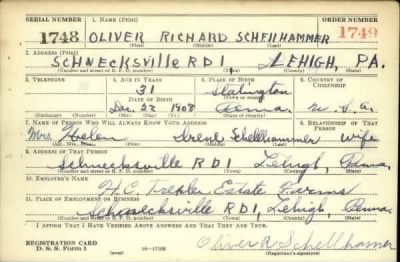 SERIAL NUMBER 1. NAME (Print) ORDER NUMBER
1748 OLIVER RICHARD SCHELLHAMMER 1749
(First) (Middle) (Last)
2. ADDRESS (Print)
SCHNECKSVILLE R D 1, LEHIGH, PA.
(Number and street or R. F. D. number) (Town) (County) (State)
3. TELEPHONE 4. AGE IN YEARS 5. PLACE OF BIRTH 6. COUNTRY OF CITIZENSHIP
31 Slatington
DATE OF BIRTH (Town or county)
Dec. 22 1908 Penna. U. S. A.
(Exchange) (Number) (Mo.) (Day) (Yr.) (State or country)
7. NAME OF PERSON WHO WILL ALWAYS KNOW YOUR ADDRESS 8. RELATIONSHIP OF THAT PERSON
Mrs. Helen Irene Schellhammer wife
(Mr., Mrs., Miss) (First) (Middle) (Last)
9. ADDRESS OF THAT PERSON
Schnecksville R D 1, Lehigh, Penna.
(Number and street or R. F. D. number) (Town) (County) (State)
10. EMPLOYER'S NAME
H. C. Trexler Estate Farms
11. PLACE OF EMPLOYMENT OR BUSINESS
Schnecksville R D 1, Lehigh, Penna.
(Number and street or R. F. D. number) (Town) (County) (State)
I AFFIRM THAT I HAVE VERIFIED ABOVE ANSWERS AND THAT THEY ARE TRUE.
REGISTRATION CARD
D. S. S. Form 1 (over) 16-17105 Oliver R Schellhamer
(Registrant's signature)